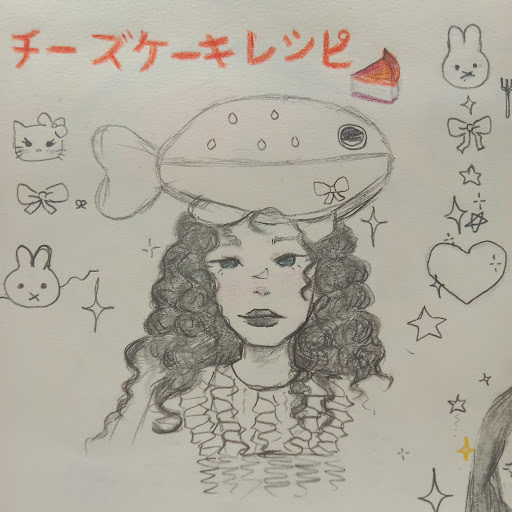 チーズケーキレシピ